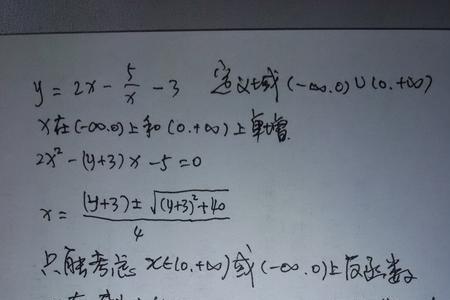 y = 2x - 5/x - 3 定义域(-∞.0)∪(0.+∞)
x在(-∞.0)上和(0.+∞)上单增
2x² - (y+3)x - 5 = 0
x = ((y+3) ± √((y+3)²+40))/4
只能考虑 x∈(0.+∞)或(-∞.0)上反函数